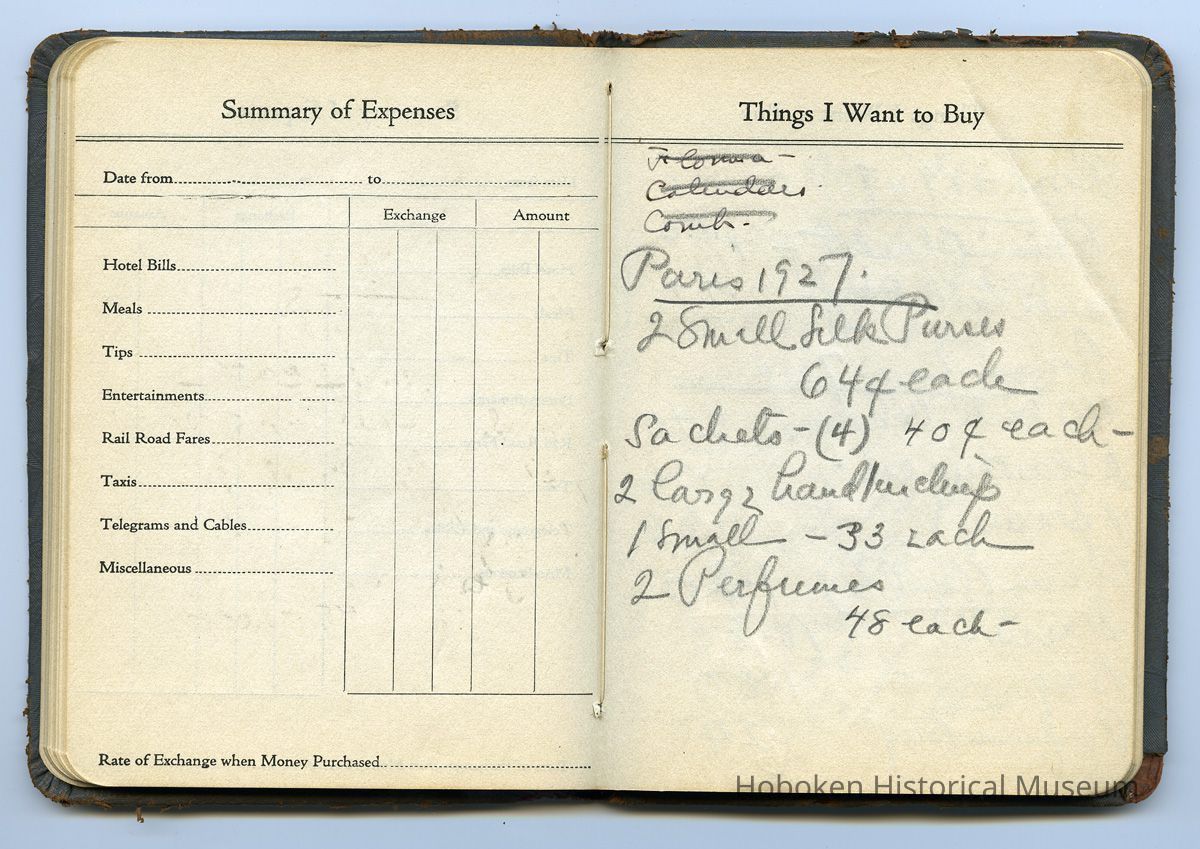 Summary of Expenses
Date from to
Exchange Amount
Hotel Bills
Meals
Tips
Entertainments
Rail Road Fares
Taxis
Telegrams and Cables
Miscellaneous
Rate of Exchange when Money Purchased
Things I Want to Buy
Calendars
Comb-
Paris 1927.
2 Small Silk Purses
64¢ each
Sachets-(4) 40¢ each-
2 large handkerchiefs
1 Small - 33 each
2 Perfumes
48 each-
Hoboken Historical Museum